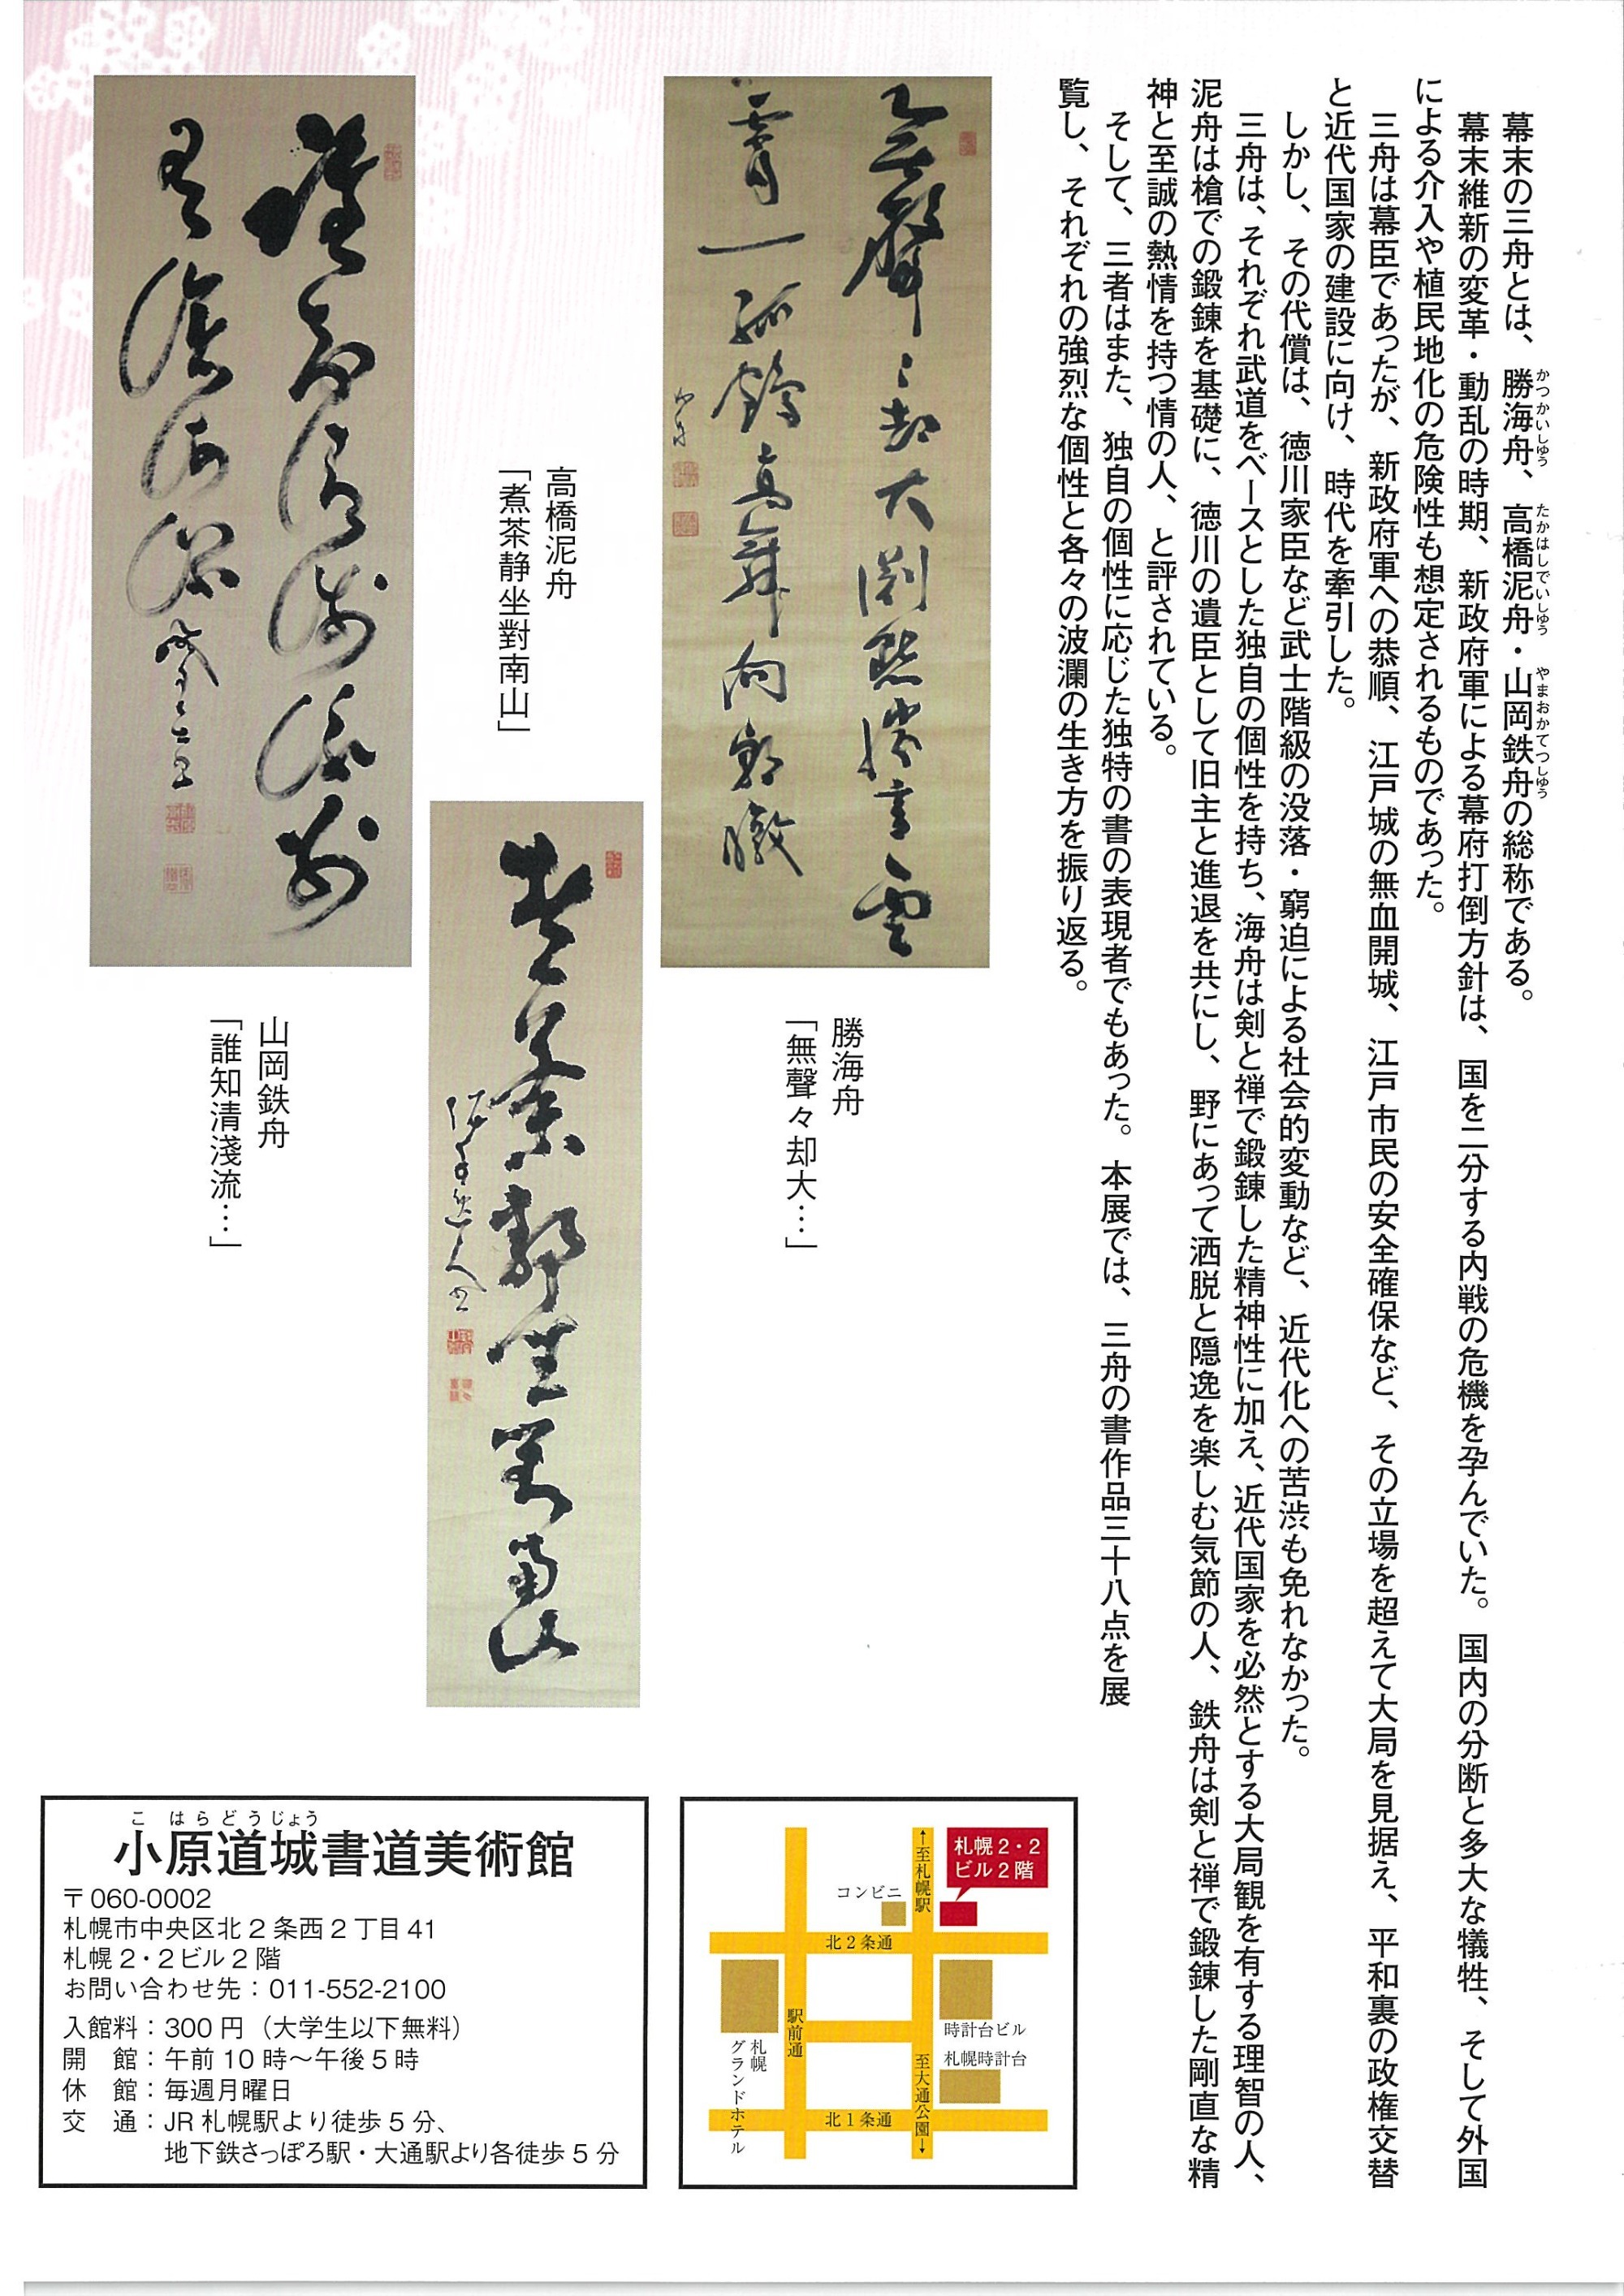 幕末の三舟とは、勝海舟、高橋泥舟・山岡鉄舟の総称である。
かつかいしゅう たかはしでいしゅう やまおかてつしゅう
幕末維新の変革・動乱の時期、新政府軍による幕府打倒方針は、国を二分する内戦の危機を孕んでいた。国内の分断と多大な犠牲、そして外国
による介入や植民地化の危険性も想定されるものであった。
三舟は幕臣であったが、新政府軍への恭順、江戸城の無血開城、江戸市民の安全確保など、その立場を超えて大局を見据え、平和裏の政権交替
と近代国家の建設に向け、時代を牽引した。
しかし、その代償は、徳川家臣など武士階級の没落・窮迫による社会的変動など、近代化への苦渋も免れなかった。
三舟は、それぞれ武道をベースとした独自の個性を持ち、海舟は剣と禅で鍛錬した精神性に加え、近代国家を必然とする大局観を有する理智の人、
泥舟は槍での鍛錬を基礎に、徳川の遺臣として旧主と進退を共にし、野にあって洒脱と隠逸を楽しむ気節の人、鉄舟は剣と禅で鍛錬した剛直な精
神と至誠の熱情を持つ情の人、と評されている。
そして、三者はまた、独自の個性に応じた独特の書の表現者でもあった。本展では、三舟の書作品三十八点を展
覧し、それぞれの強烈な個性と各々の波瀾の生き方を振り返る。
勝海舟
「無聲々却大…」
高橋泥舟
「煮茶静坐對南山」
山岡鉄舟
「誰知清淺流…」
煮茶静坐對南山
札幌2・2
ビル2階
↑至札幌駅
コンビニ
北2条通
駅前通
時計台ビル
札幌時計台
札幌
グランドホテル
至大通公園↓
北1条通
こはらどうじょう
小原道城書道美術館
〒060-0002
札幌市中央区北2条西2丁目41
札幌2・2ビル2階
お問い合わせ先：011-552-2100
入館料：300円（大学生以下無料）
開　館：午前10時～午後5時
休　館：毎週月曜日
交　通：JR札幌駅より徒歩5分、
地下鉄さっぽろ駅・大通駅より各徒歩5分